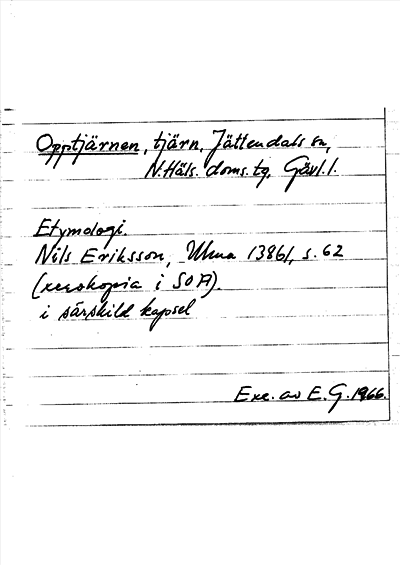 Opptjärnen, tjärn, Jättendals sn,
N. Häls. doms. tg, Gävl. l.
Etymologi.
Nils Eriksson, Ulma 13861, s. 62
(xerokopia i SOA).
i särskild kapsel
Exc. av E. G. 1966.